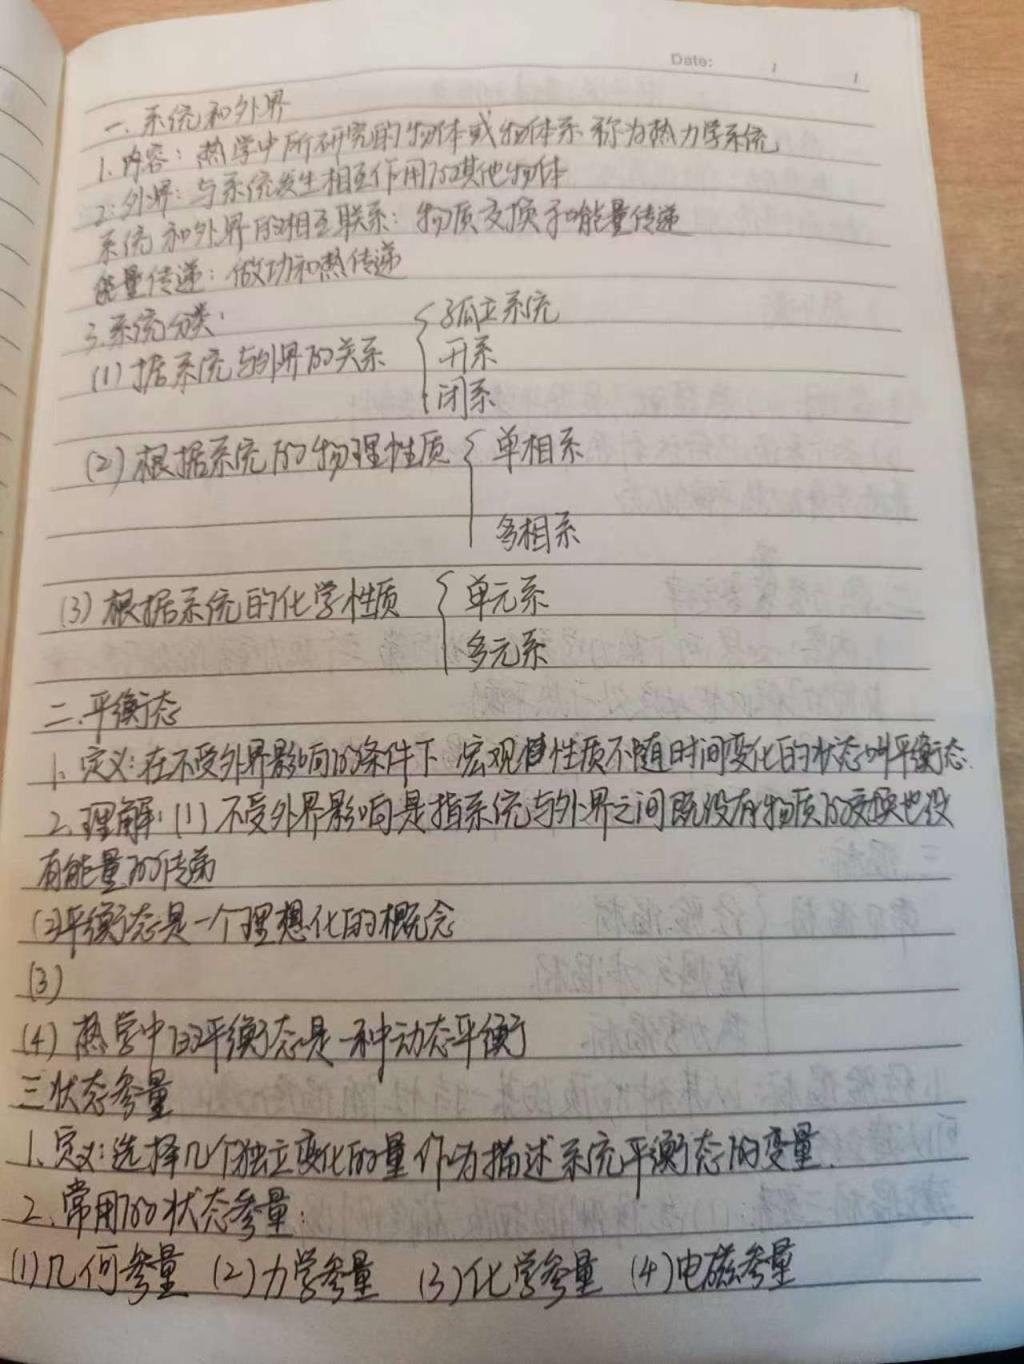 Date: / /
一、系统和外界
1.内容：热学中所研究的物体或物体系称为热力学系统
2.外界：与系统发生相互作用的其他物体
系统和外界的相互联系：物质交换和能量传递
能量传递：做功和热传递
3.系统分类：
(1)据系统与外界的关系 { 孤立系统
开系
闭系
(2)根据系统的物理性质 { 单相系
多相系
(3)根据系统的化学性质 { 单元系
多元系
二、平衡态
1、定义：在不受外界影响的条件下 宏观性质不随时间变化的状态叫平衡态.
2、理解：(1)不受外界影响是指系统与外界之间既没有物质的交换也没
有能量的传递
(2)平衡态是一个理想化的概念
(3)
(4)热学中的平衡态是一种动态平衡
三状态参量
1、定义：选择几个独立变化的量作为描述系统平衡态的变量.
2、常用的状态参量：
(1)几何参量 (2)力学参量 (3)化学参量 (4)电磁参量